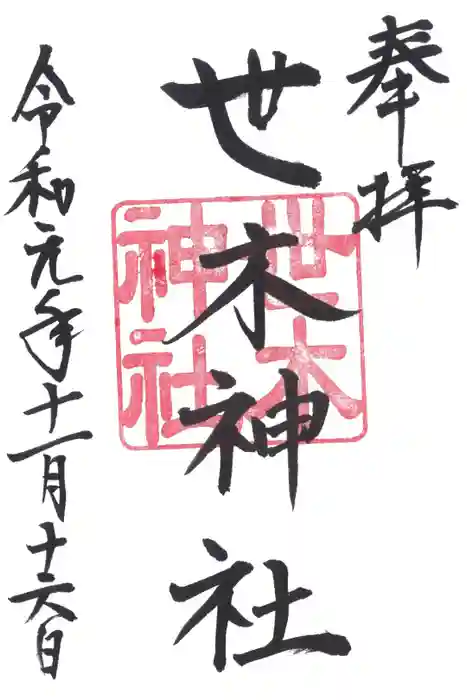 奉拝
世木神社
世木
神社
令和元年十一月十六日